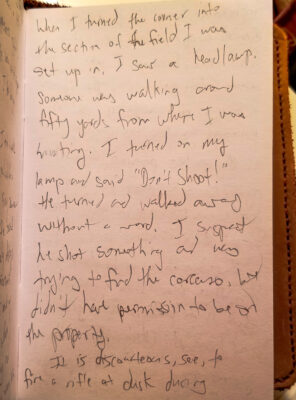 When I turned the corner into
the section of the field I was
set up in, I saw a headlamp.
Someone was walking around
fifty yards from where I was
hunting. I turned on my
lamp and said "Don't Shoot!"
He turned and walked away
without a word. I suspect
he shot something and was
trying to find the carcass, but
didn't have permission to be on
the property.
It is discourteous, see, to
fire a rifle at dusk during